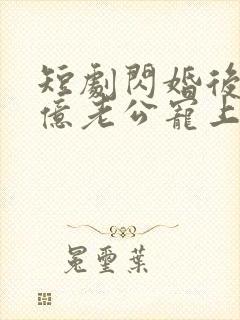 短劇閃婚後
億老公寵上
冕璽葉